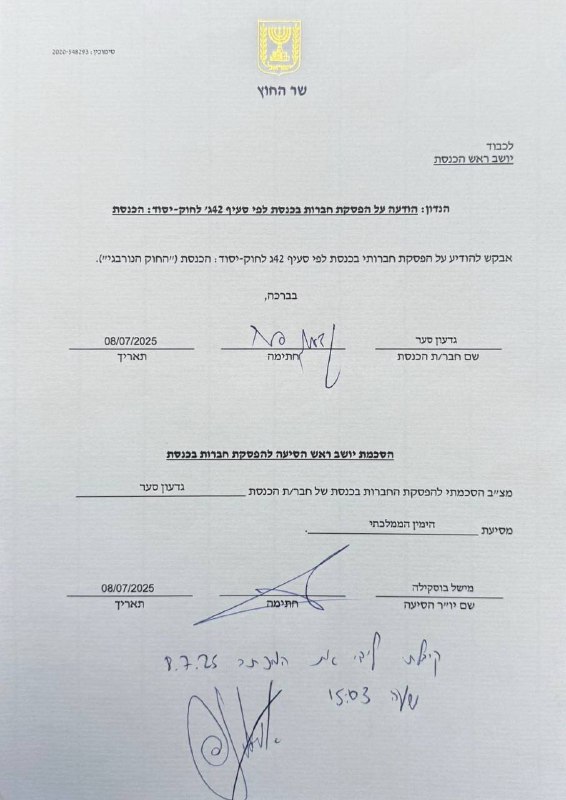 סימוכין: 2020-548293
שר החוץ
לכבוד
יושב ראש הכנסת
הנדון: הודעה על הפסקת חברות בכנסת לפי סעיף 42ג' לחוק-יסוד: הכנסת
אבקש להודיע על הפסקת חברותי בכנסת לפי סעיף 42ג לחוק-יסוד: הכנסת ("החוק הנורבגי").
בברכה,
גדעון סער גדעון סער 08/07/2025
שם חבר/ת הכנסת חתימה תאריך
הסכמת יושב ראש הסיעה להפסקת חברות בכנסת
מצ"ב הסכמתי להפסקת החברות בכנסת של חבר/ת הכנסת גדעון סער
מסיעת הימין הממלכתי.
מישל בוסקילה 08/07/2025
שם יו"ר הסיעה חתימה תאריך
קיבלתי לידי את המכתב 8.7.25
שעה 15:03